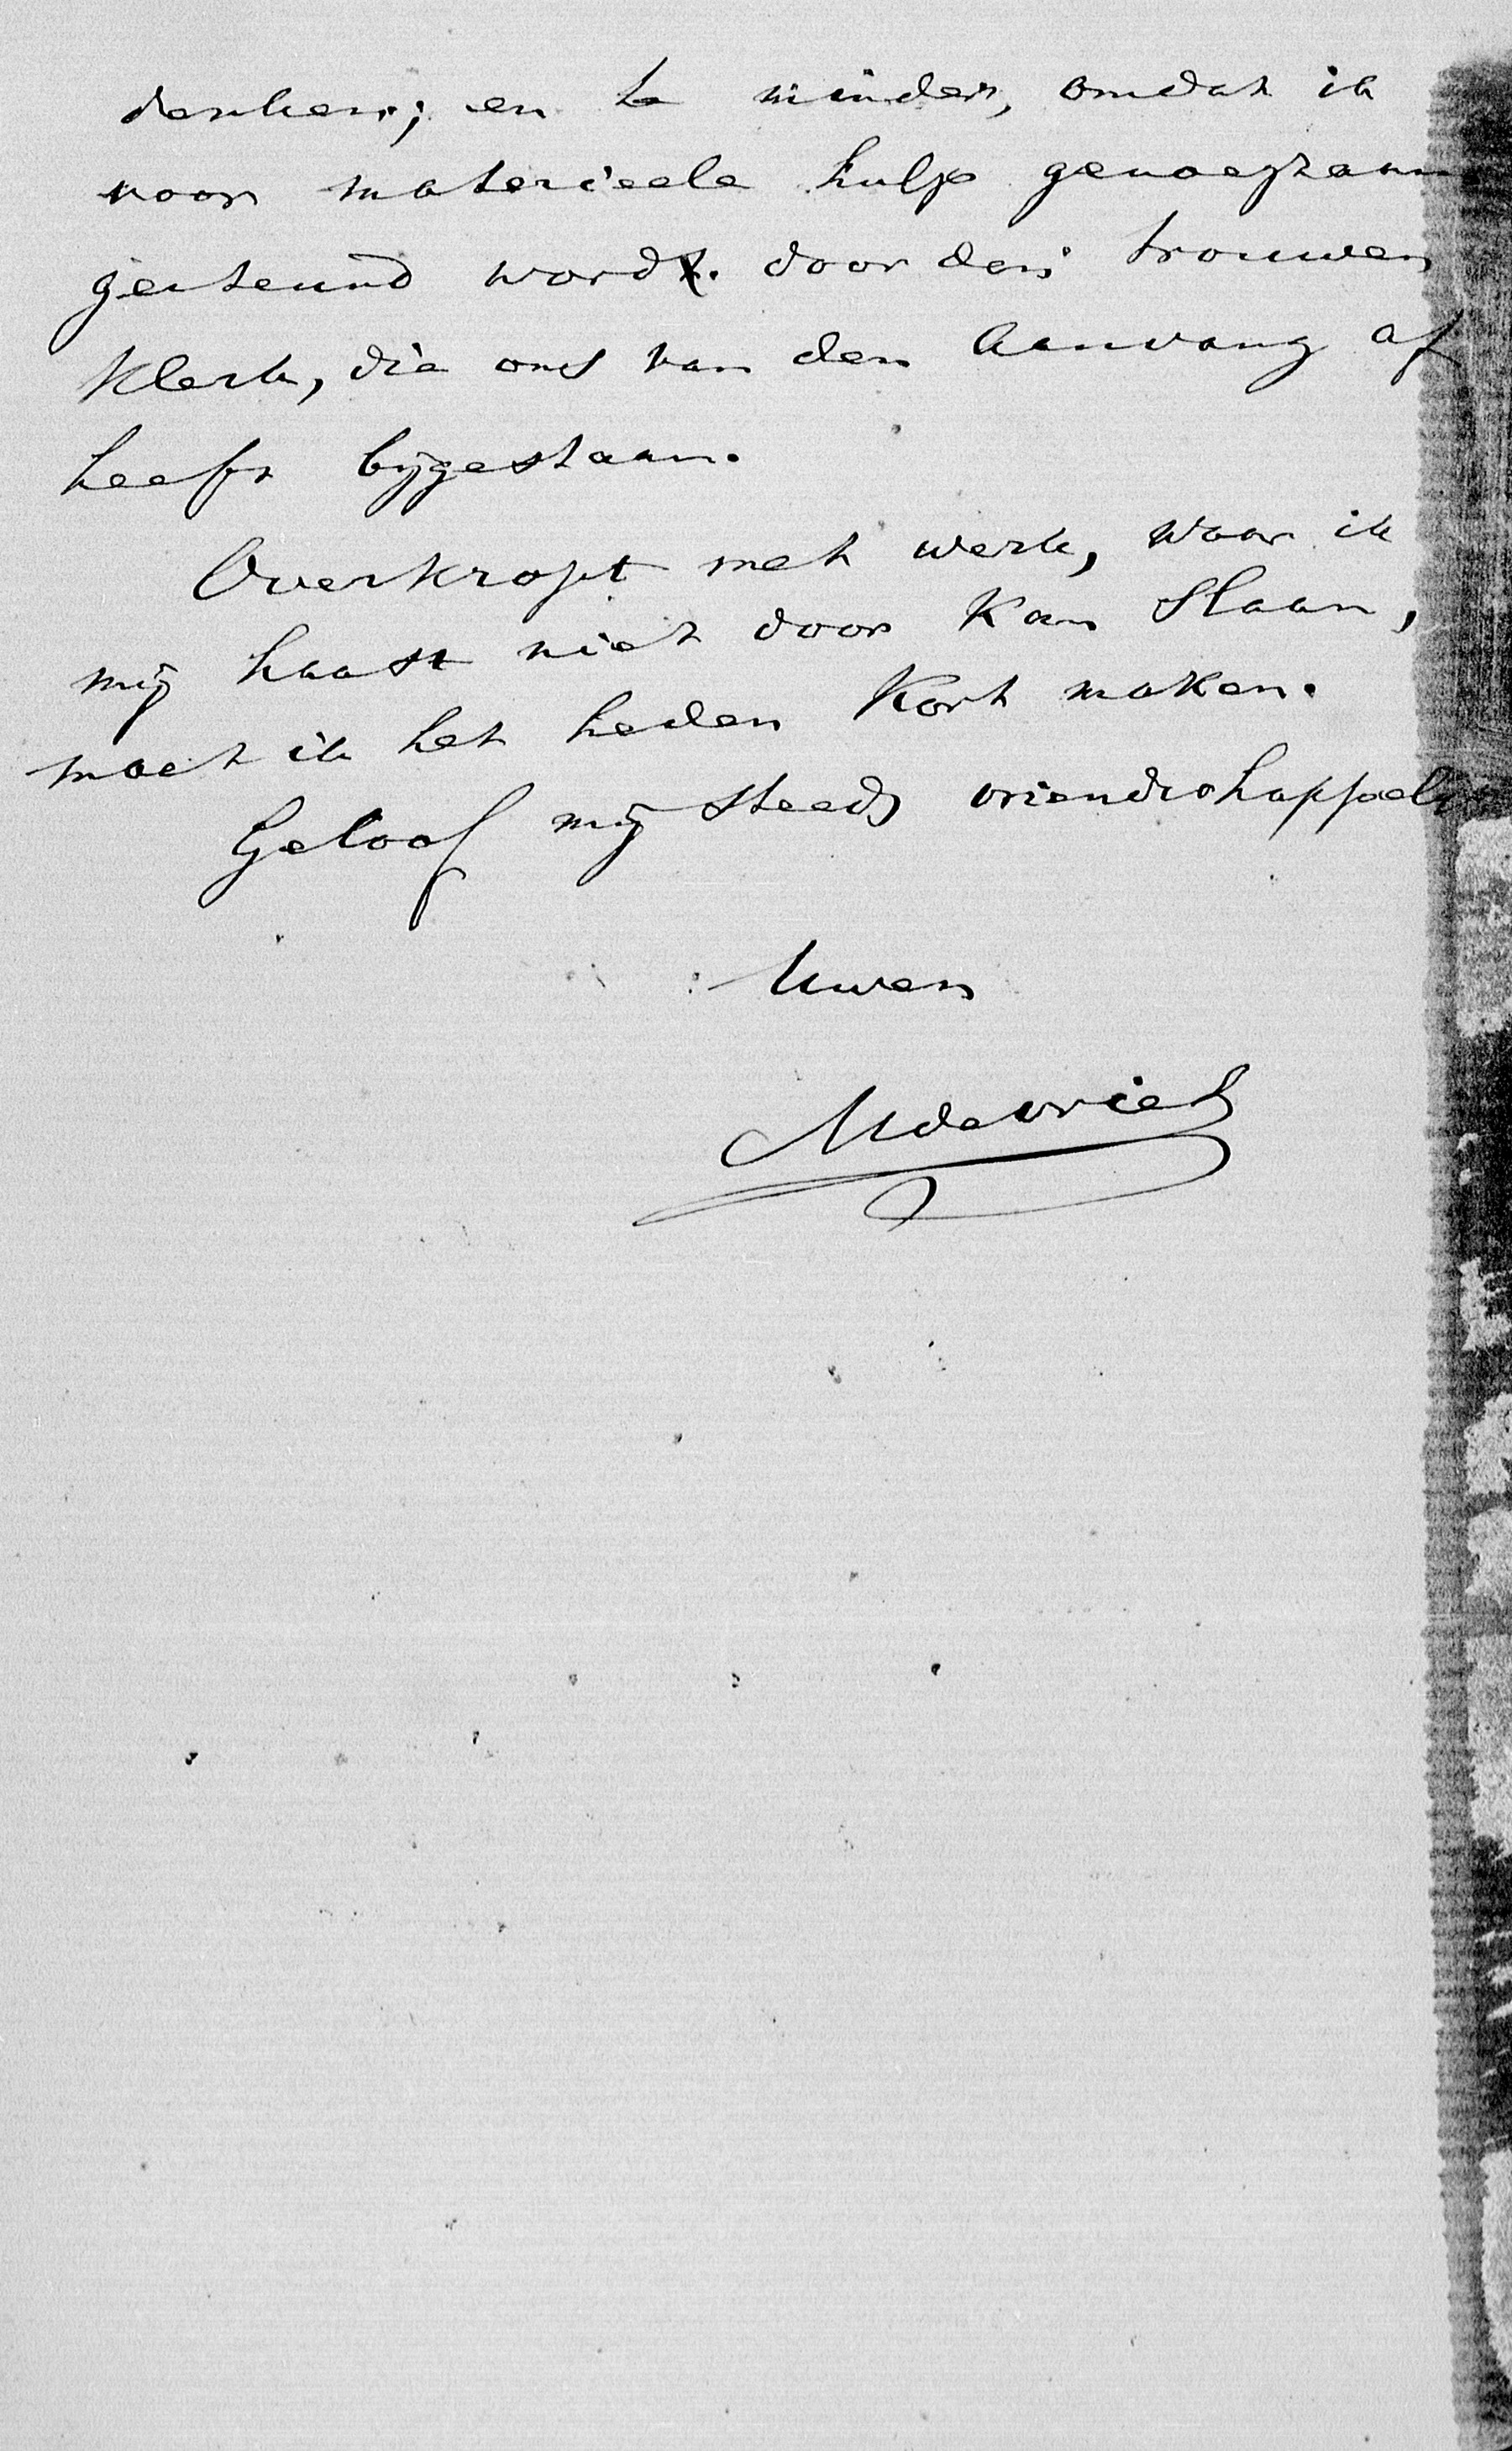 denken; en te minder, omdat ik
voor materieele hulp genoegzaam
gesteund word door den trouwen
klerk, die ons van den aanvang af
heeft bijgestaan.
Overkropt met werk, waar ik
mij haast niet door kan slaan,
moet ik het heden kort maken.
Geloof mij steeds vriendschappelijk
Uwen
M de Vries